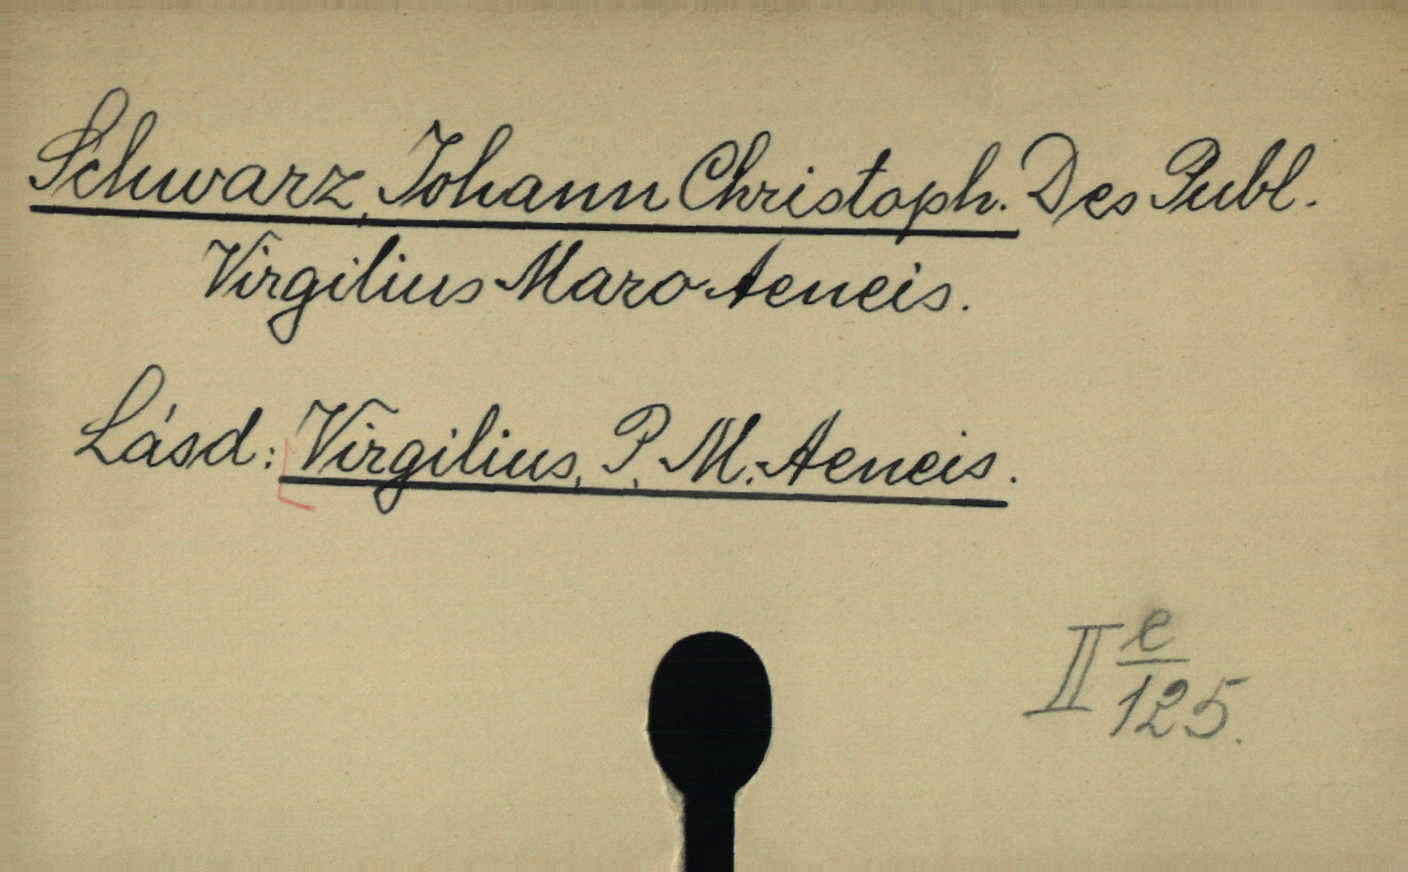 Schwarz, Johann Christoph. Des Publ.
Virgilius Maro Aeneis.
Lásd: Virgilius, P. M. Aeneis.
II e/125.